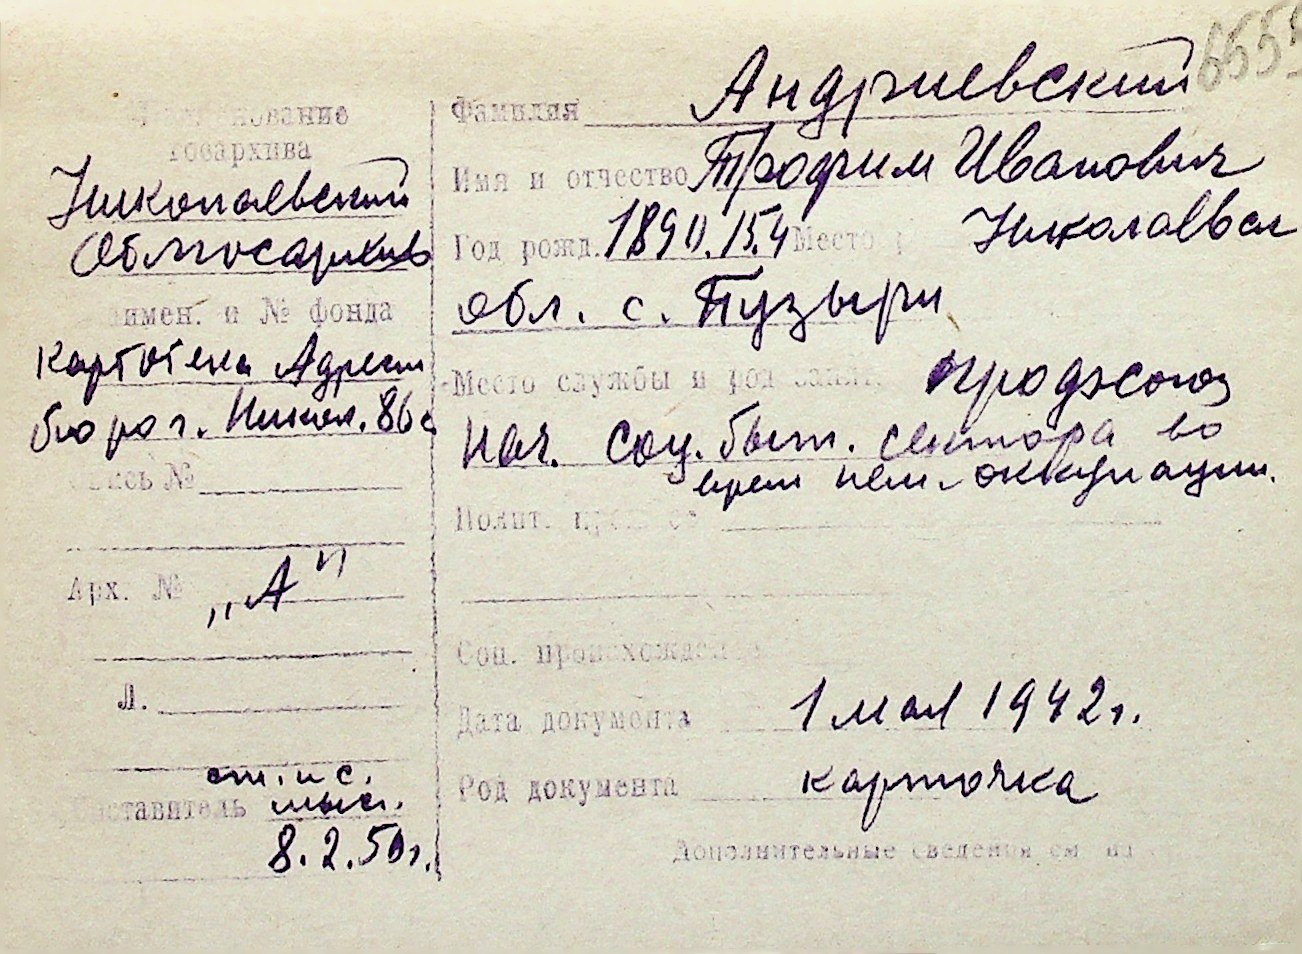 655
Наименование
госархива
Николаевский
Облгосархив
наимен. и № фонда
картотека Адресн
бюро г. Никол. 86с
Опись №
Арх. № „А"
Л.
ст. и с.
Составитель
8.2.50г.
Фамилия Андриевский
Имя и отчество Трофим Иванович
Год рожд. 1890.15.4 Место р Николаевск
обл. с. Пузыри
Место службы и род занят. профсоюз
нач. соц. быт. сектора во
врем нем. оккупации.
Полит.
Соц. происхожден
Дата документа 1 мая 1942 г.
Род документа карточка
Дополнительные сведения см на